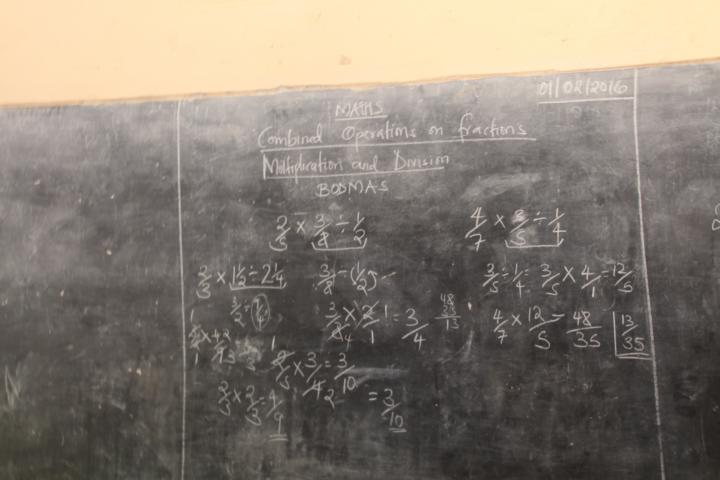 01/02/2016
MATHS
Combined Operations on fractions
Multiplication and Division
BODMAS
2/5 × 3/8 ÷ 1/2
4/7 × 3/5 ÷ 1/4
2/3 × 1 1/2 ÷ 2 1/4
3/8 ÷ (1/2)
3/5 ÷ 1/4 = 3/5 × 4/1 = 12/5
3/8 4 × 2/1 1 = 3/4
48
35
13
4/7 × 12/5 = 48/35
13/35
2/5 × 3/4 2 = 3/10
= 3/10
2/3 × 2/3 = 4/9